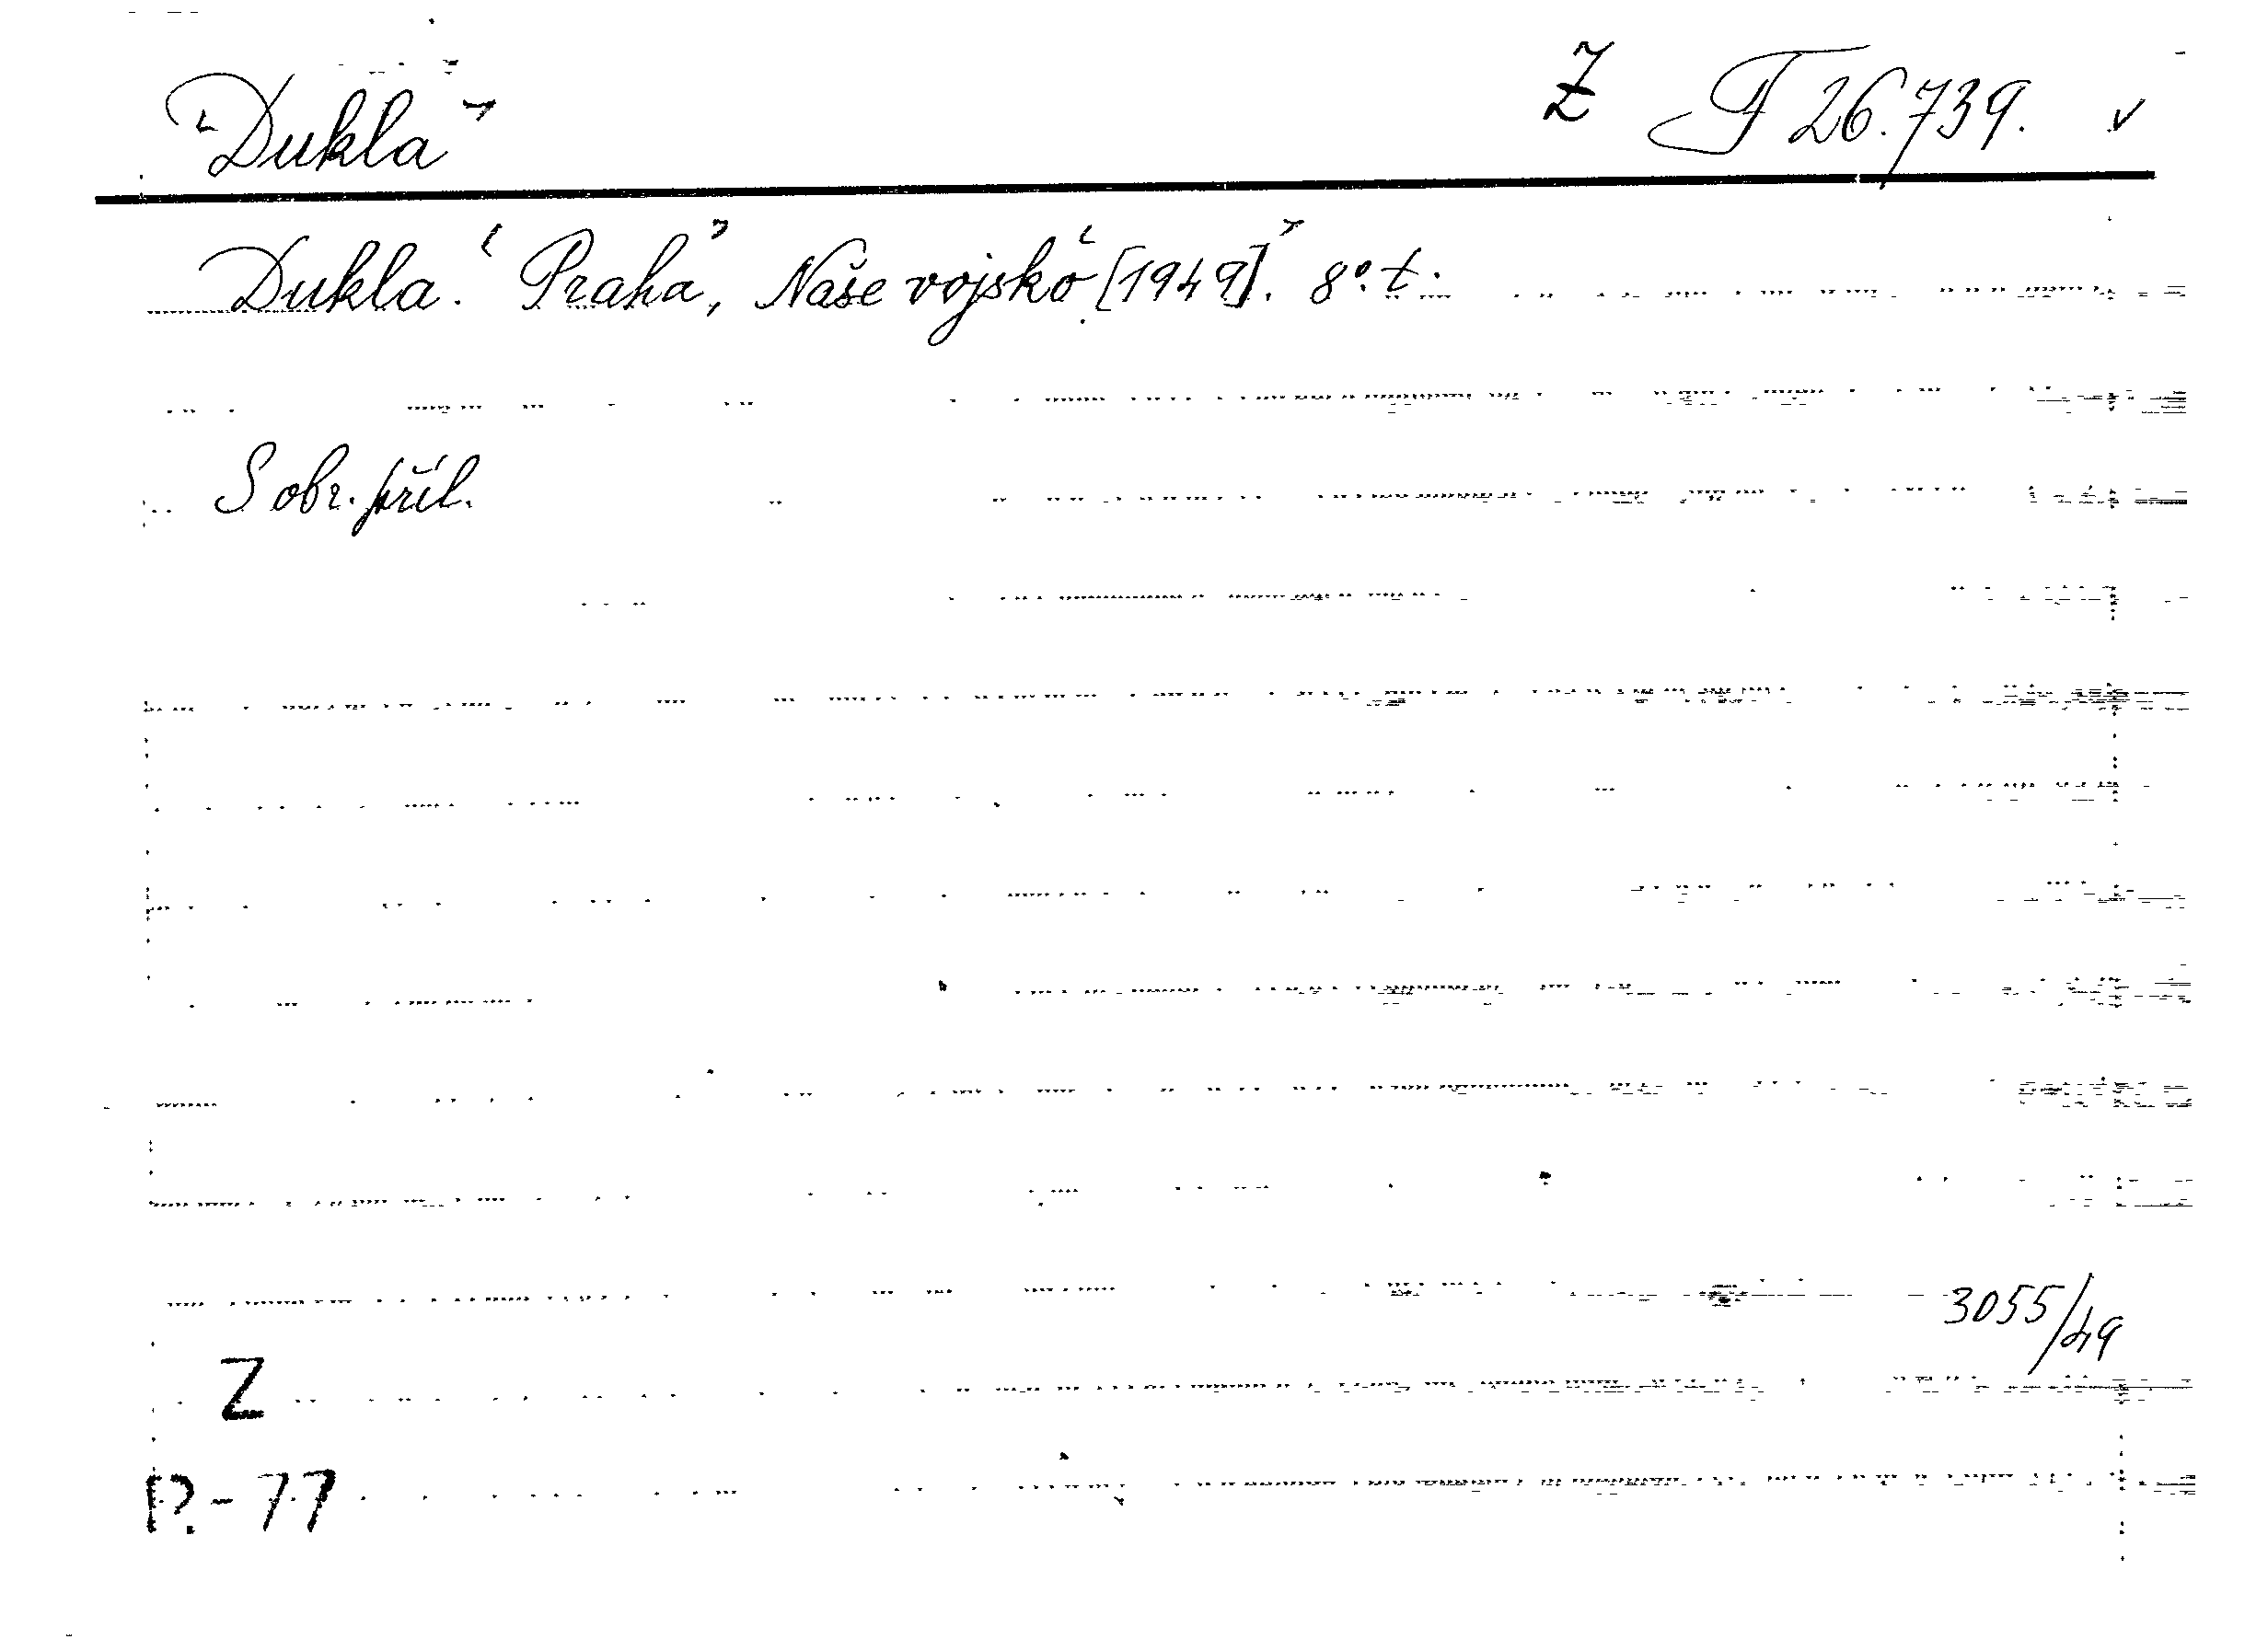 Dukla Z F 26.739. v
Dukla. Praha, Naše vojsko [1949]. 8°. t.
S obr. příl.
3055/49
Z
P.-77